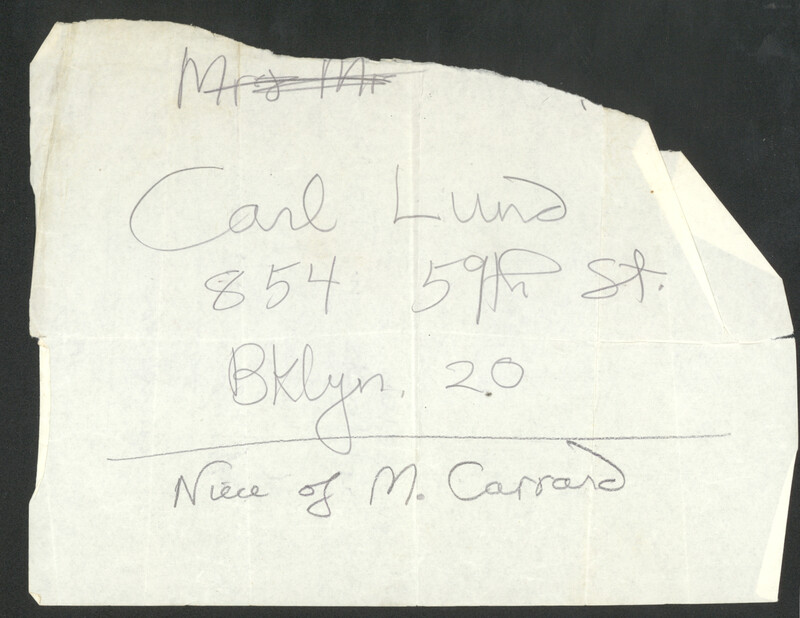 Mrs Mr
Carl Lund
854 59th St.
BKlyn. 20
Niece of M. Carrard